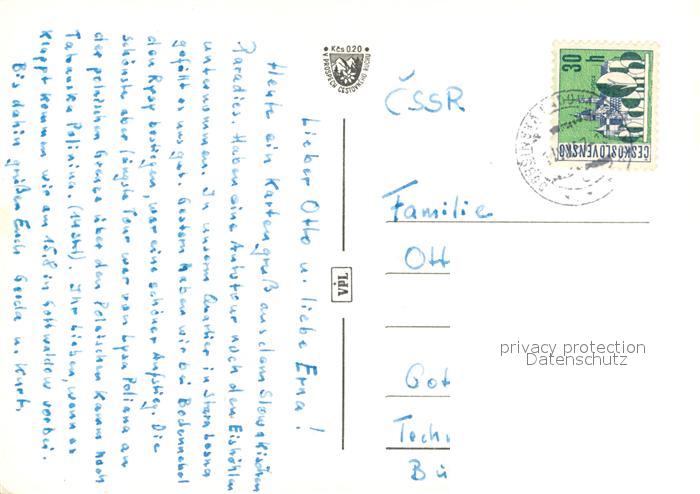 Lieber Otto u. liebe Erna!
Heute ein Kartengruß aus dem Slowakischen
Paradies. Haben eine Autotour nach den Eishöhlen
unternommen. In unserem Quartier in Stara Lesna
gefällt es uns gut. Gestern haben wir bei Bodennebel
den Rysy bestiegen, war eine schöner Aufstieg. Die
schönste aber längste Tour war von Lysa Poliana an
der polnischen Grenze über den Polnischen Kamm nach
Tatranska Polinina. (11 Std). Ihr Lieben, wenn es
klappt kommen wir am 15.8 in Gottwaldow vorbei.
Bis dahin grüßen Euch Gerda u. Kurt.
Kčs 0.20
V PROSPĚCH CESTOVNÉHO RUCHU
VpL
ČSSR
30 h
ČESKOSLOVENSKO
Familie
Ott
Got
Tech
Bu
privacy protection
Datenschutz